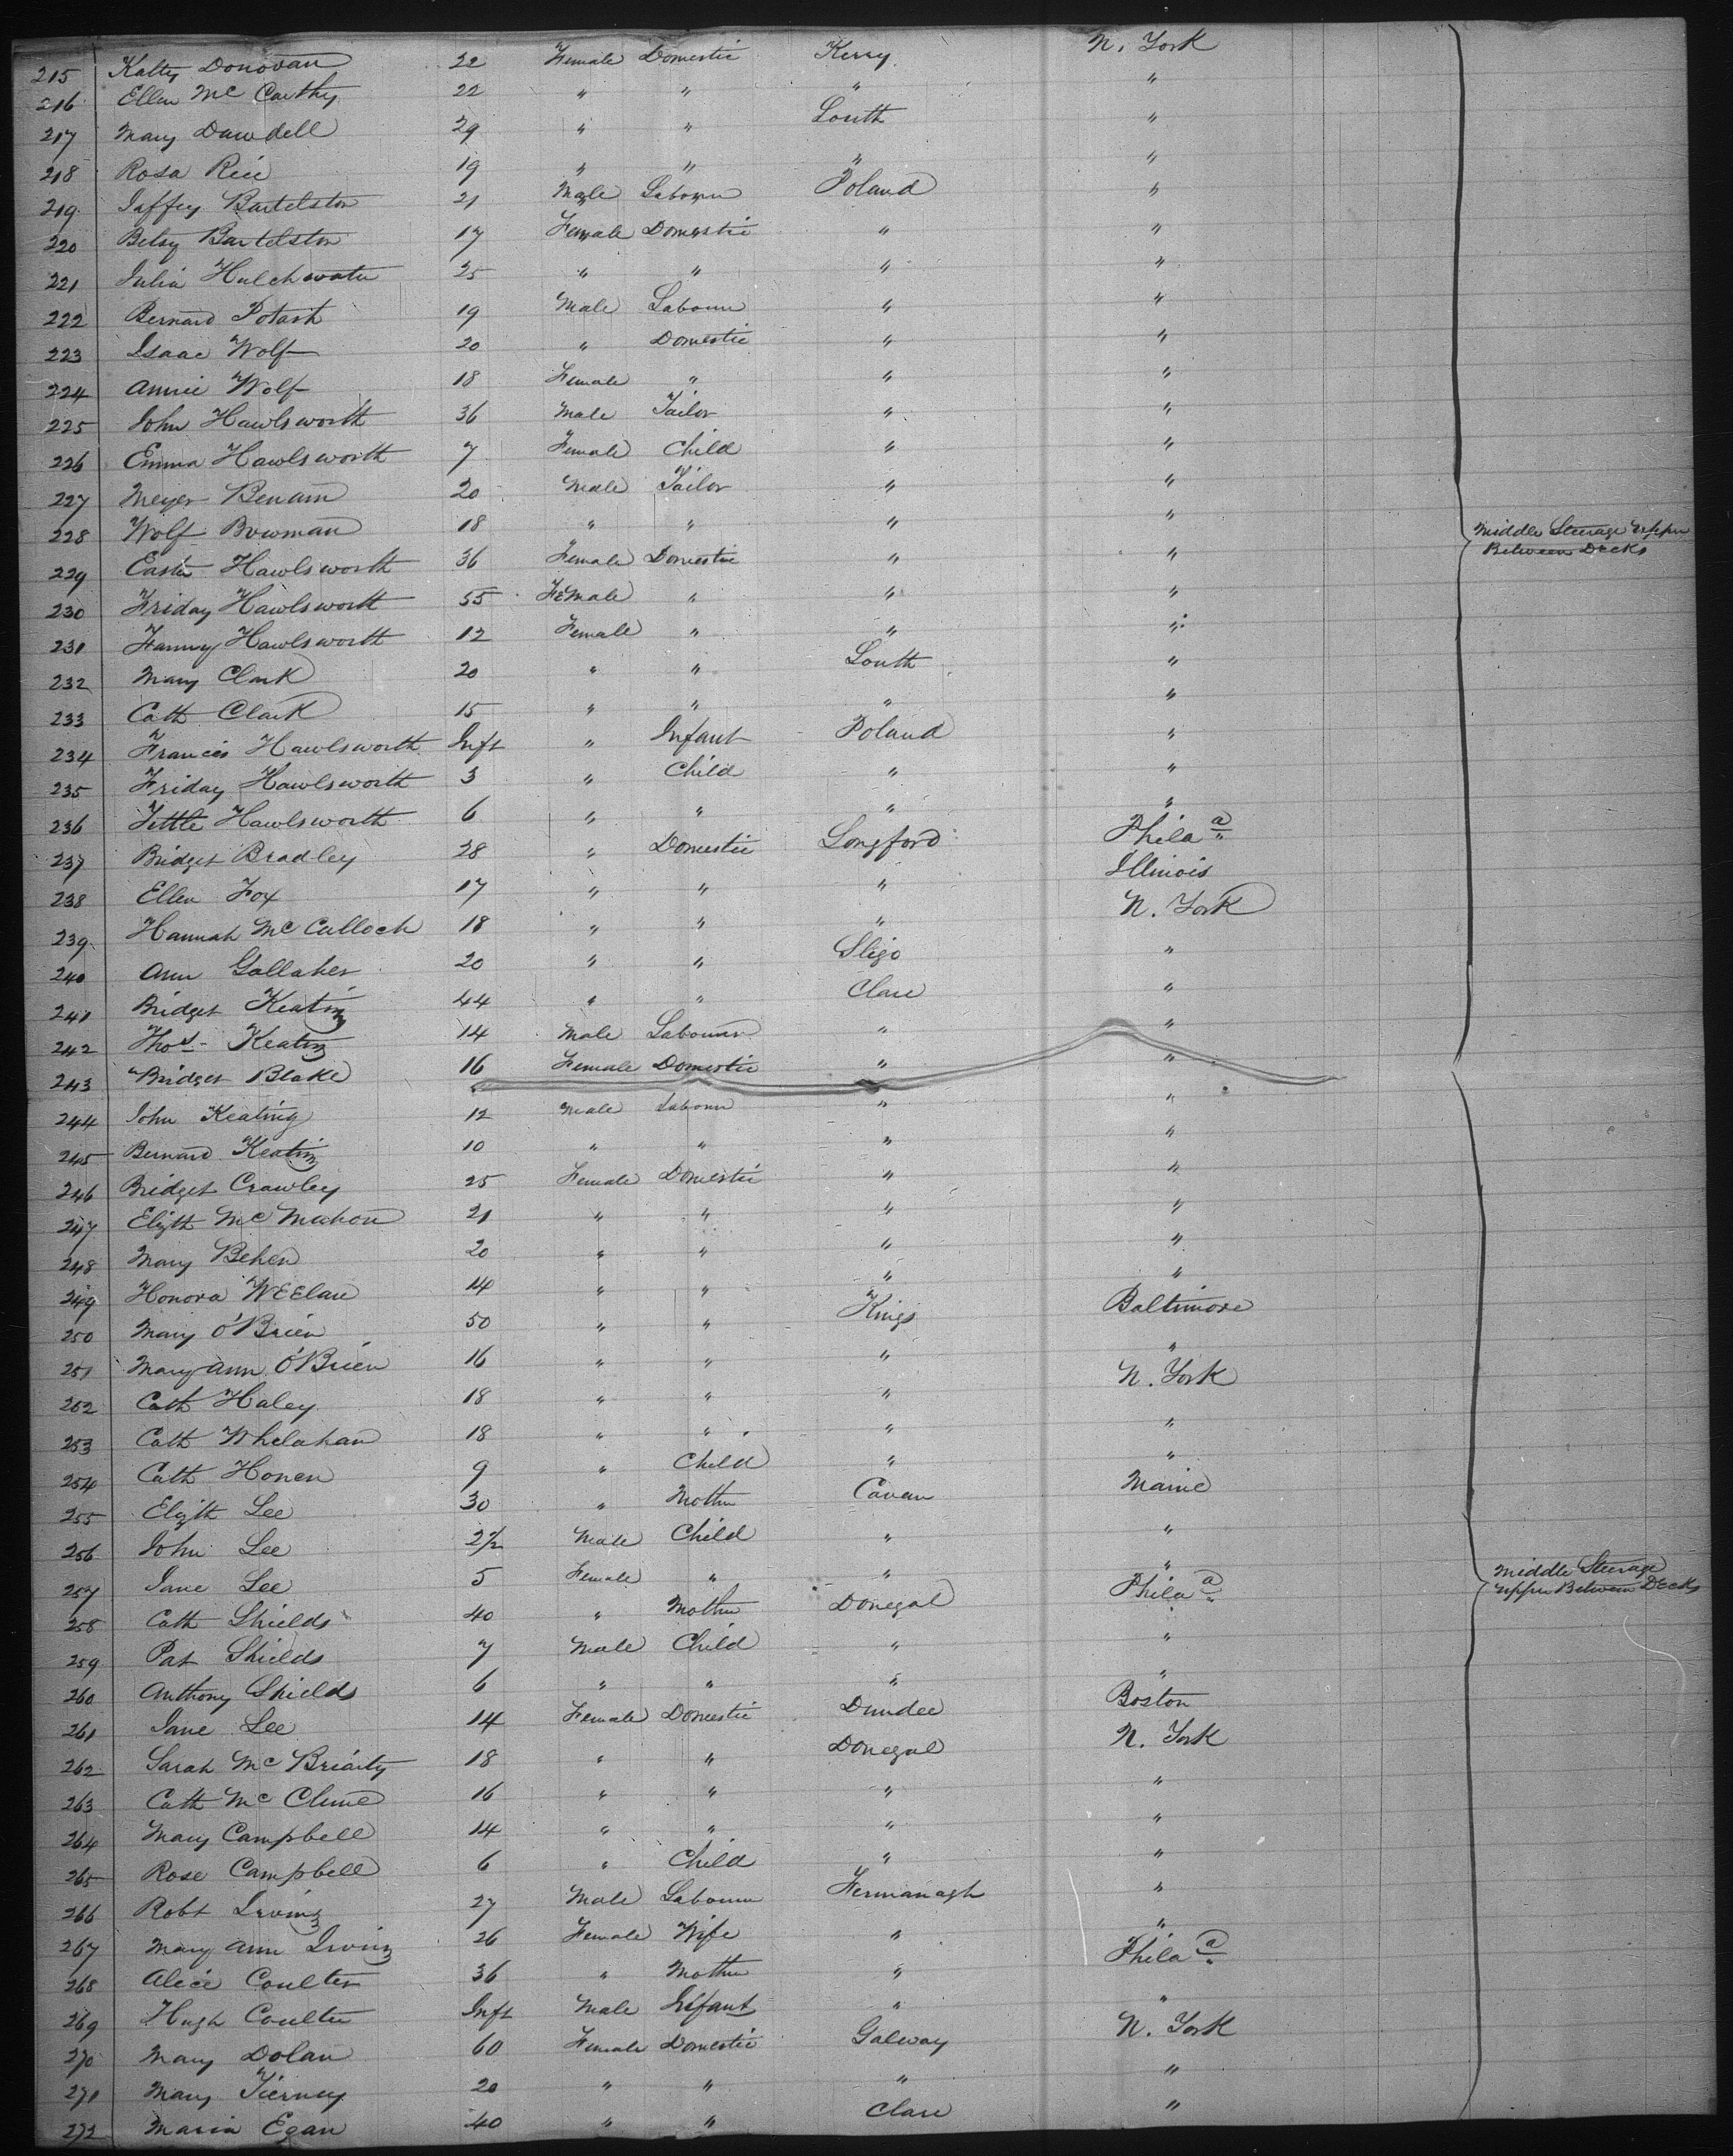 215 Katty Donovan 22 Female Domestic Kerry N. York
216 Ellen Mc Carthy 22 " " " "
217 Mary Dawdell 29 " " Louth "
218 Rosa Rice 19 " " " "
219 Jaffey Bartelston 21 Male Labourer Poland "
220 Betsy Bartelston 17 Female Domestic " "
221 Julia Hulchwater 25 " " " "
222 Bernard Potash 19 Male Labourer " "
223 Isaac Wolf 20 " Domestic " "
224 Annie Wolf 18 Female " " "
225 John Hawlsworth 36 Male Tailor " "
226 Emma Hawlsworth 7 Female Child " "
227 Meyer Benam 20 Male Tailor " "
228 Wolf Bowman 18 " " " " Middle Steerage Upper
229 Easter Hawlsworth 36 Female Domestic " " Between Decks
230 Friday Hawlsworth 55 Female " " "
231 Fanny Hawlsworth 12 Female " " "
232 Mary Clark 20 " " Louth "
233 Cath Clark 15 " " " "
234 Francis Hawlsworth Inft " Infant Poland "
235 Friday Hawlsworth 3 " Child " "
236 Tettle Hawlsworth 6 " " " "
237 Bridget Bradley 28 " Domestic Longford Phila a
238 Ellen Fox 17 " " " Illinois
239 Hannah Mc Culloch 18 " " " N. York
240 Ann Gallaher 20 " " Sligo "
241 Bridget Keating 44 " " Clare "
242 Thos Keating 14 Male Labourer " "
243 Bridget Blake 16 Female Domestic " "
244 John Keating 12 Male Labourer " "
245 Bernard Keating 10 " " " "
246 Bridget Crawley 25 Female Domestic " "
247 Elizth Mc Mahon 21 " " " "
248 Mary Behen 20 " " " "
249 Honora WEElan 14 " " " "
250 Mary O'Brien 50 " " Kings Baltimore
251 Mary Ann O'Brien 16 " " " "
252 Cath Haley 18 " " " N. York
253 Cath Whelahan 18 " " " "
254 Cath Honen 9 " Child " "
255 Elizth Lee 30 " Mother Cavan Maine
256 John Lee 2/2 Male Child " "
257 Jane Lee 5 Female " " " Middle Steerage
258 Cath Shields 40 " Mother Donegal Phila a Upper Between Decks
259 Pat Shields 7 Male Child " "
260 Anthony Shields 6 " " " "
261 Jane Lee 14 Female Domestic Dundee Boston
262 Sarah Mc Briarty 18 " " Donegal N. York
263 Cath Mc Clune 16 " " " "
264 Mary Campbell 14 " " " "
265 Rose Campbell 6 " Child " "
266 Robt Irving 27 Male Labourer Fermanagh "
267 Mary Ann Irving 26 Female Wife " "
268 Alice Coulter 36 " Mother " Phila a
269 Hugh Coulter Inft Male Infant " "
270 Mary Dolan 60 Female Domestic Galway N. York
271 Mary Tierney 20 " " " "
272 Maria Egan 40 " " Clare "